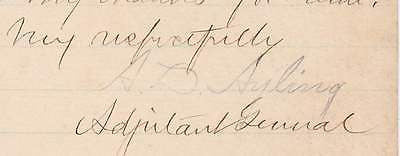 my thanks for
Very respectfully
A. D. Ayling
Adjutant General